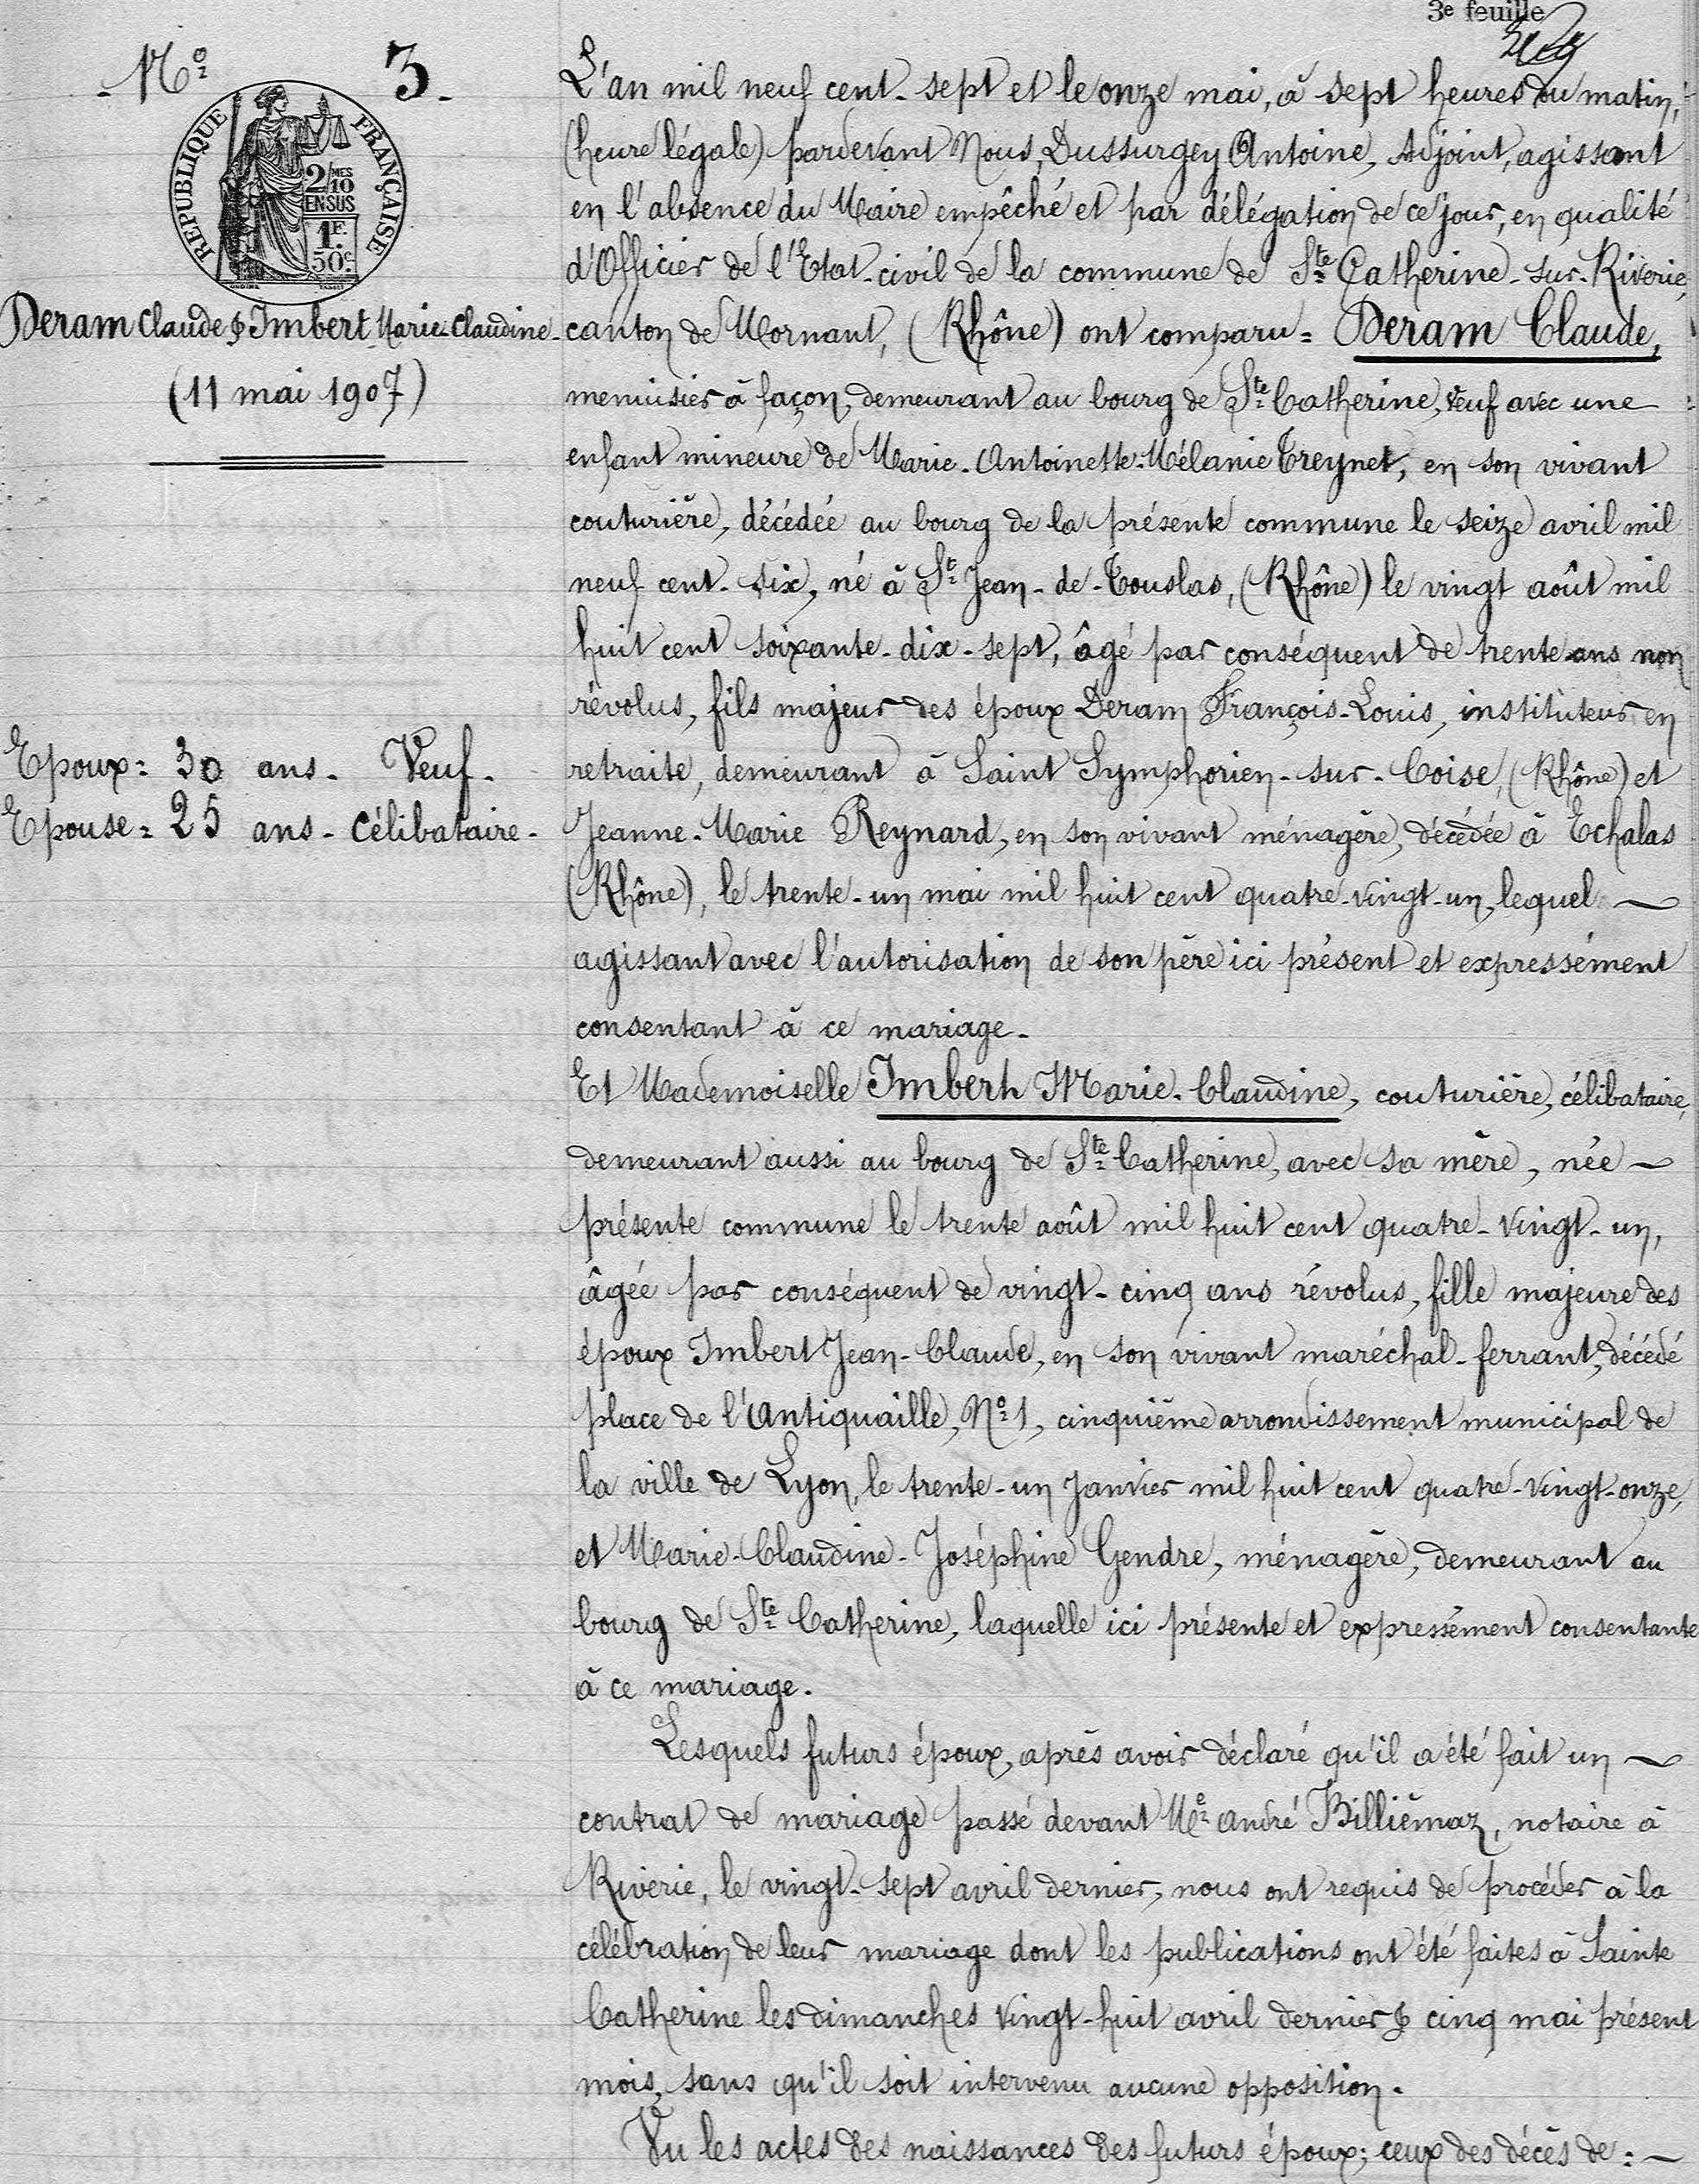 3e feuille
No 3.
RÉPUBLIQUE FRANÇAISE
2/10MES
EN SUS
1F.
50c.
Deram Claude & Imbert Marie-Claudine.
(11 mai 1907)
Epoux = 30 ans. Veuf.
Epouse = 25 ans. Célibataire.
L'an mil neuf cent-sept et le onze mai, à sept heures du matin,
(heure légale) pardevant Nous, Dussurgey Antoine, Adjoint, agissant
en l'absence du Maire empêché et par délégation de ce jour, en qualité
d'Officier de l'Etat-civil de la commune de Ste Catherine-sur-Riverie,
canton de Mornant, (Rhône) ont comparu = Deram Claude,
menuisier à façon, demeurant au bourg de Ste Catherine, veuf avec une
enfant mineure de Marie-Antoinette-Mélanie Treynet, en son vivant
couturière, décédée au bourg de la présente commune le seize avril mil
neuf cent-six, né à St Jean-de-Touslas, (Rhône) le vingt août mil
huit cent soixante-dix-sept, âgé par conséquent de trente ans non
révolus, fils majeur des époux Deram François-Louis, instituteur en
retraite, demeurant à Saint Symphorien-sur-Coise, (Rhône) et
Jeanne-Marie Reynard, en son vivant ménagère, décédée à Echalas
(Rhône), le trente-un mai mil huit cent quatre-vingt-un, lequel
agissant avec l'autorisation de son père ici présent et expressément
consentant à ce mariage.
Et Mademoiselle Imbert Marie-Claudine, couturière, célibataire,
demeurant aussi au bourg de Ste Catherine, avec sa mère, née
présente commune le trente août mil huit cent quatre-vingt-un,
âgée par conséquent de vingt-cinq ans révolus, fille majeure des
époux Imbert Jean-Claude, en son vivant maréchal-ferrant, décédé
place de l'Antiquaille, No 1, cinquième arrondissement municipal de
la ville de Lyon, le trente-un janvier mil huit cent quatre-vingt-onze,
et Marie-Claudine-Joséphine Gendre, ménagère, demeurant au
bourg de Ste Catherine, laquelle ici présente et expressément consentante
à ce mariage.
Lesquels futurs époux, après avoir déclaré qu'il a été fait un
contrat de mariage passé devant Me André Billiémaz, notaire à
Riverie, le vingt-sept avril dernier, nous ont requis de procéder à la
célébration de leur mariage dont les publications ont été faites à Sainte
Catherine les dimanches vingt-huit avril dernier & cinq mai présent
mois, sans qu'il soit intervenu aucune opposition.
Vu les actes des naissances des futurs époux; ceux des décès de :